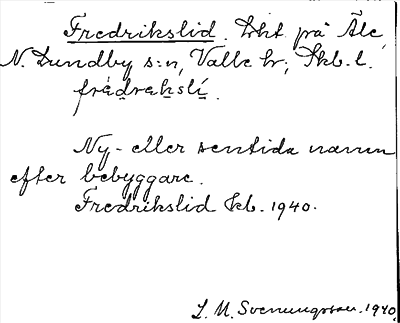 Fredrikslid. Lht på Äle,
N. Lundby s:n, Valle hr; Skb. l.
frèdrəkslí.
Ny- eller sentida namn
efter bebyggare.
Fredrikslid kb. 1940.
L. M. Svenungsson. 1940.